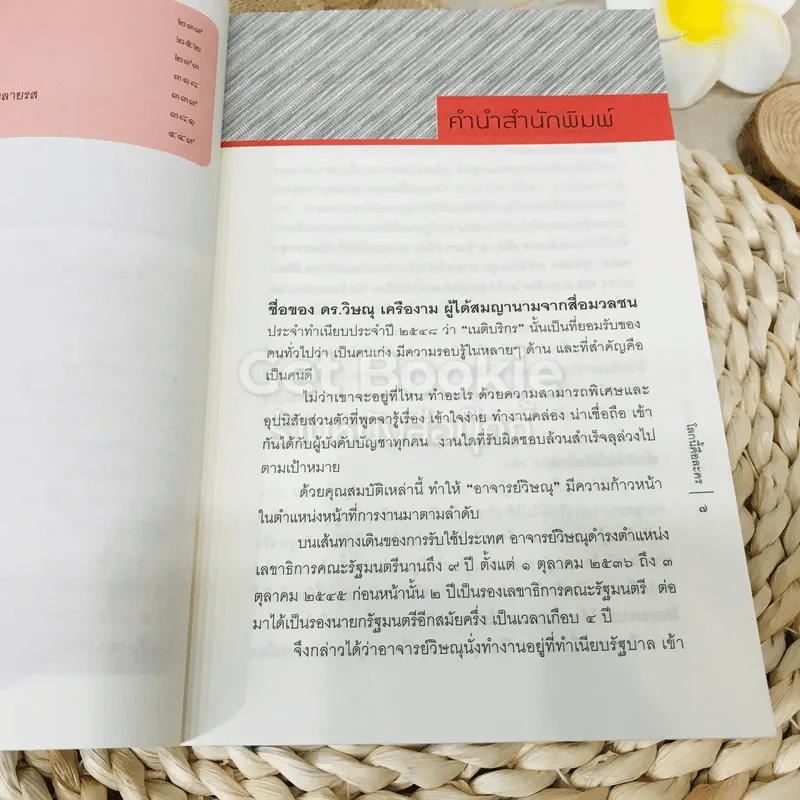 ๒๓๙
๒๕๒
๒๙๓
๓๑๘
ลายรส
๓๓๙
๓๘๑
๔๔๙
คำนำสำนักพิมพ์
ชื่อของ ดร.วิษณุ เครืองาม ผู้ได้สมญานามจากสื่อมวลชน
ประจำทำเนียบประจำปี ๒๕๔๘ ว่า “เนติบริกร” นั้นเป็นที่ยอมรับของ
คนทั่วไปว่า เป็นคนเก่ง มีความรอบรู้ในหลายๆ ด้าน และที่สำคัญคือ
เป็นคนดี
ไม่ว่าเขาจะอยู่ที่ไหน ทำอะไร ด้วยความสามารถพิเศษและ
อุปนิสัยส่วนตัวที่พูดจารู้เรื่อง เข้าใจง่าย ทำงานคล่อง น่าเชื่อถือ เข้า
กันได้กับผู้บังคับบัญชาทุกคน งานใดที่รับผิดชอบล้วนสำเร็จลุล่วงไป
ตามเป้าหมาย
ด้วยคุณสมบัติเหล่านี้ ทำให้ “อาจารย์วิษณุ” มีความก้าวหน้า
ในตำแหน่งหน้าที่การงานมาตามลำดับ
บนเส้นทางเดินของการรับใช้ประเทศ อาจารย์วิษณุดำรงตำแหน่ง
เลขาธิการคณะรัฐมนตรีนานถึง ๙ ปี ตั้งแต่ ๑ ตุลาคม ๒๕๓๖ ถึง ๓
ตุลาคม ๒๕๔๕ ก่อนหน้านั้น ๒ ปีเป็นรองเลขาธิการคณะรัฐมนตรี ต่อ
มาได้เป็นรองนายกรัฐมนตรีอีกสมัยครึ่ง เป็นเวลาเกือบ ๔ ปี
จึงกล่าวได้ว่าอาจารย์วิษณุนั่งทำงานอยู่ที่ทำเนียบรัฐบาล เข้า
โลกนี้คือละคร
๗
Get Bookie